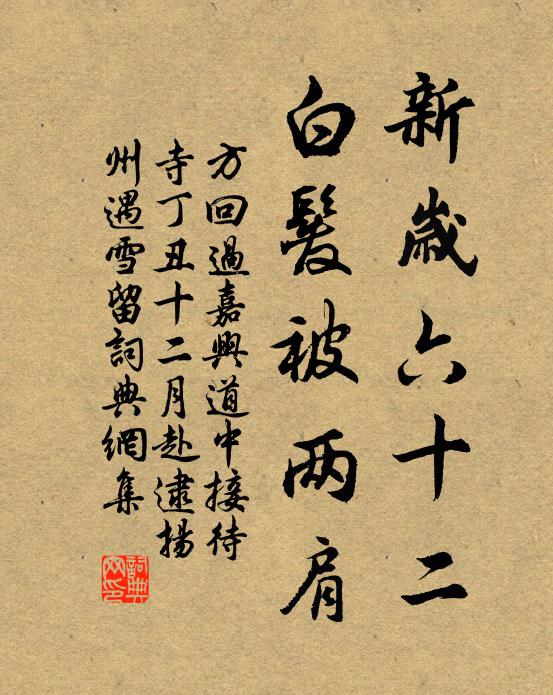 新歲六十二
白髮被两肩
方回過嘉興道中接待
寺丁丑十二月赴逮揚
州遇雪留詞典網集
詞典
网印